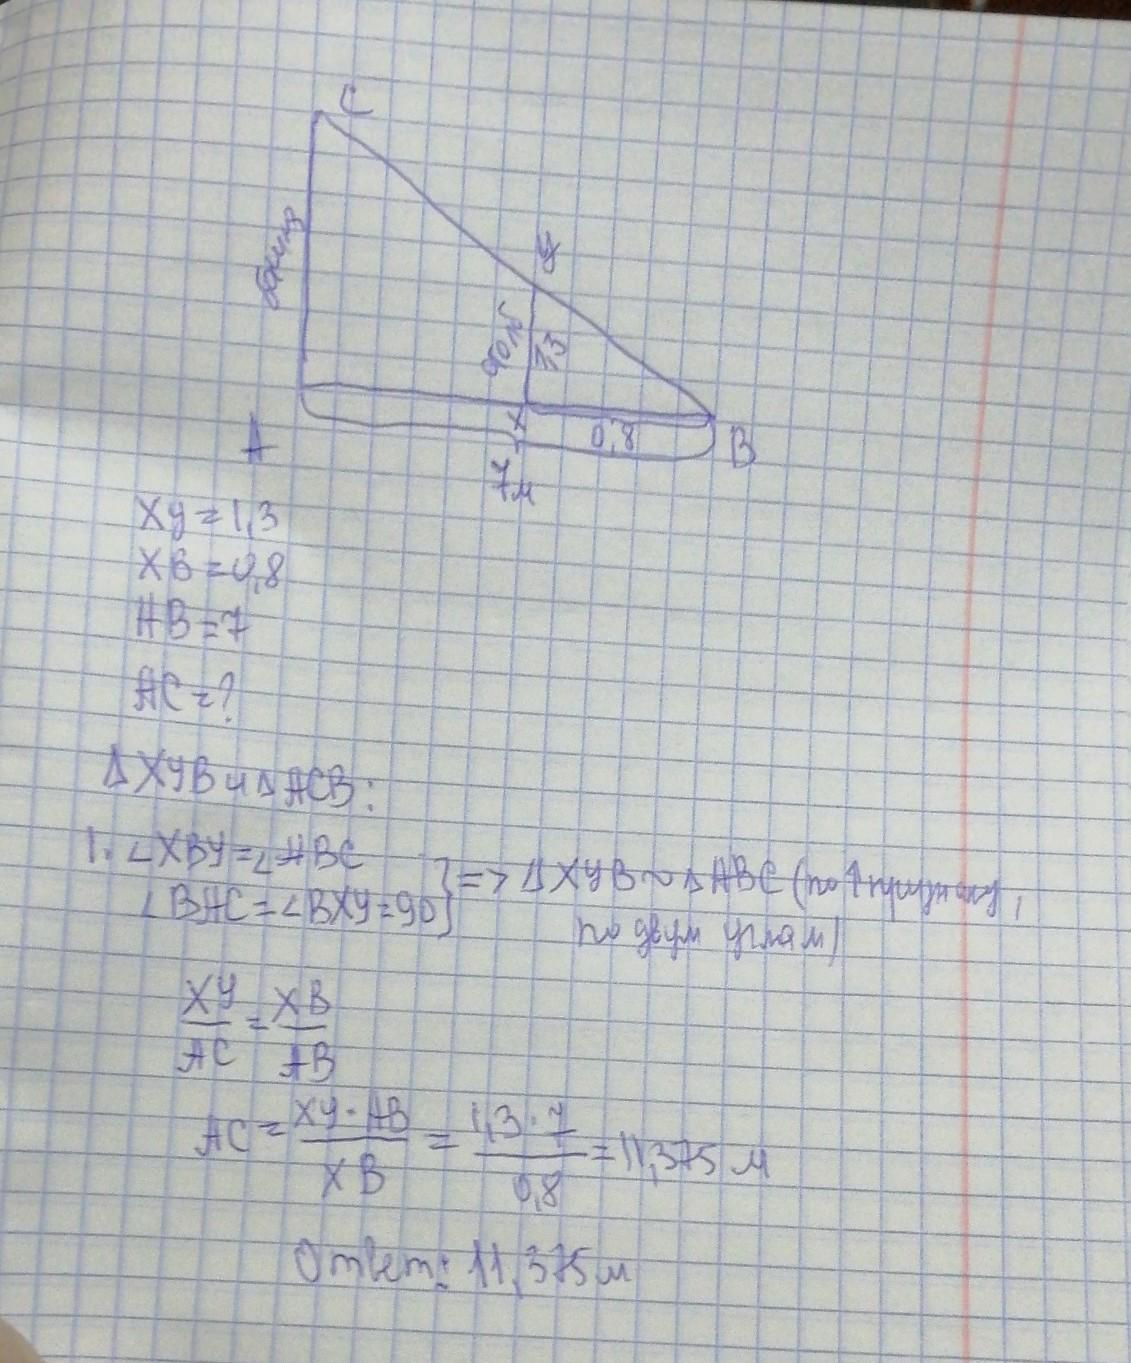 C
У
1,3
A
X
0,8
B
7м
XУ = 1,3
XB = 0,8
AB = 7
AC = ?
Δ XУB и Δ ACB:
1. ∠XBУ = ∠ABC
∠BAC = ∠BXУ = 90 } => Δ XУB ~ Δ ABC (по 1 признаку,
по двум углам)
XУ/AC = XB/AB
AC = XУ · AB / XB = 1,3 · 7 / 0,8 = 11,375 м
Ответ: 11,375 м